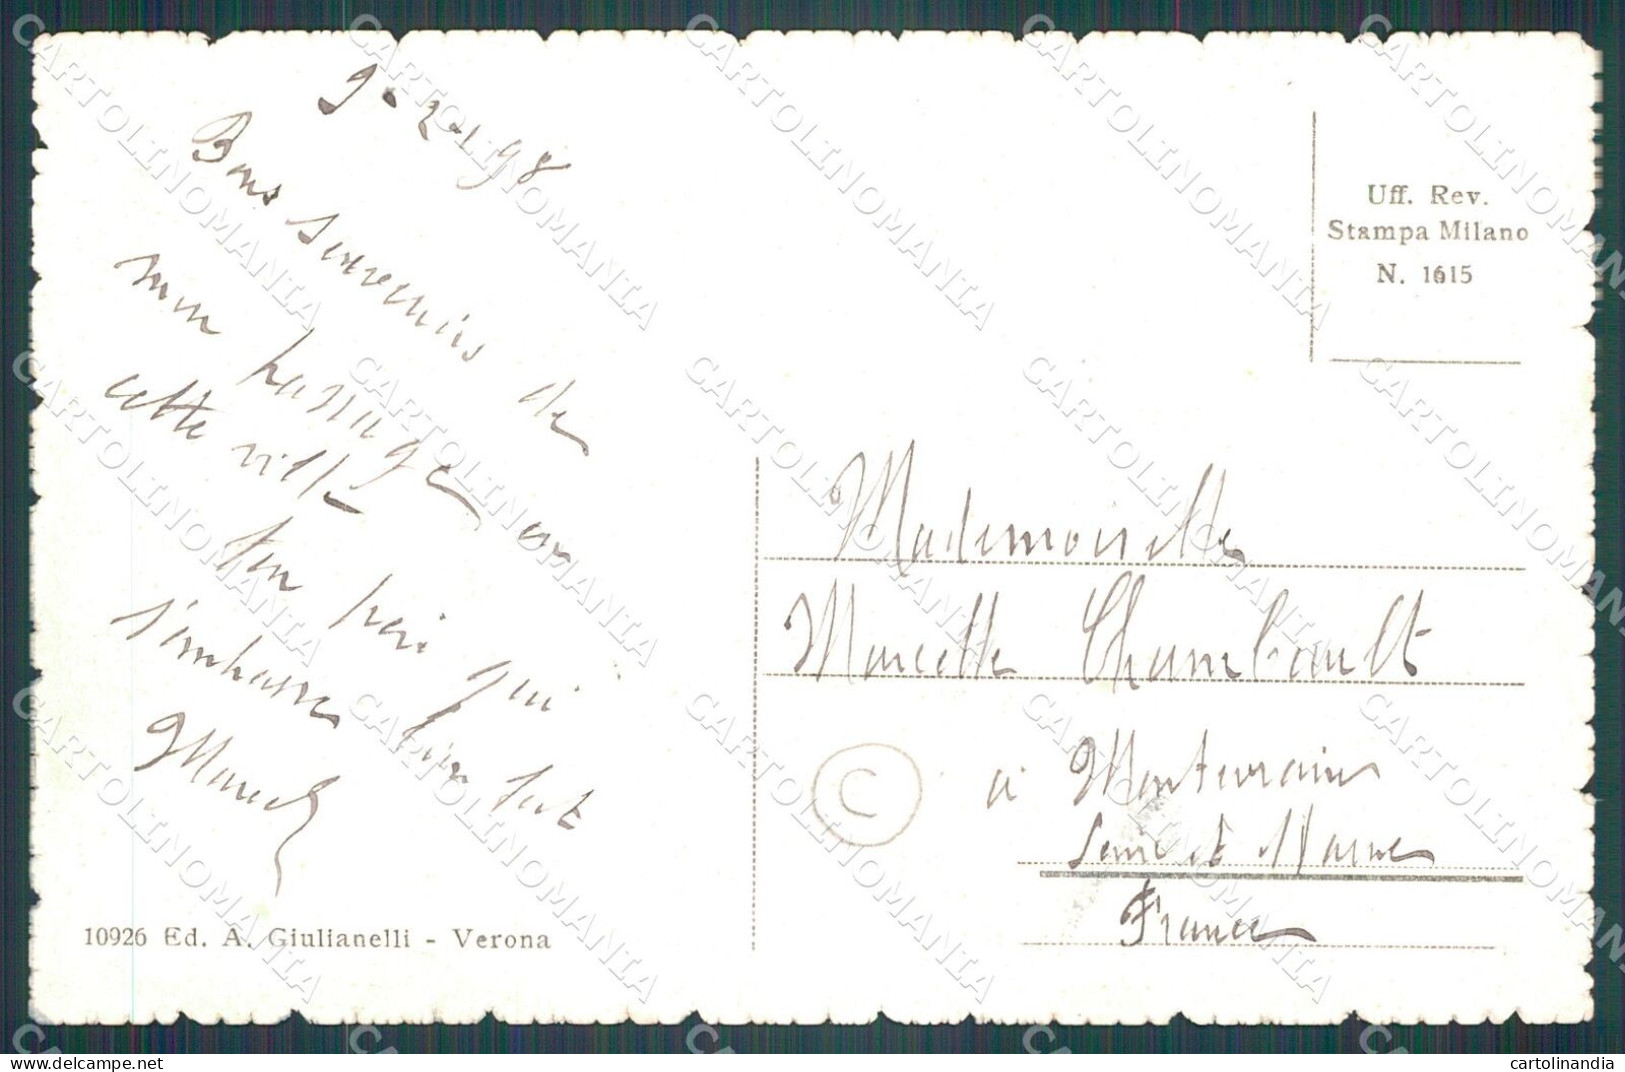 9-2-1918
Bons souvenirs de
mon passage en
cette ville
Ton qui
t'embrasse bien fort
Marcel
10926 Ed. A. Giulianelli - Verona
Uff. Rev.
Stampa Milano
N. 1615
Mademoiselle
Marcelle Chambault
à Montevrain
Seine et Marne
France
C
CARTOLINOMANIA
cartolinandia